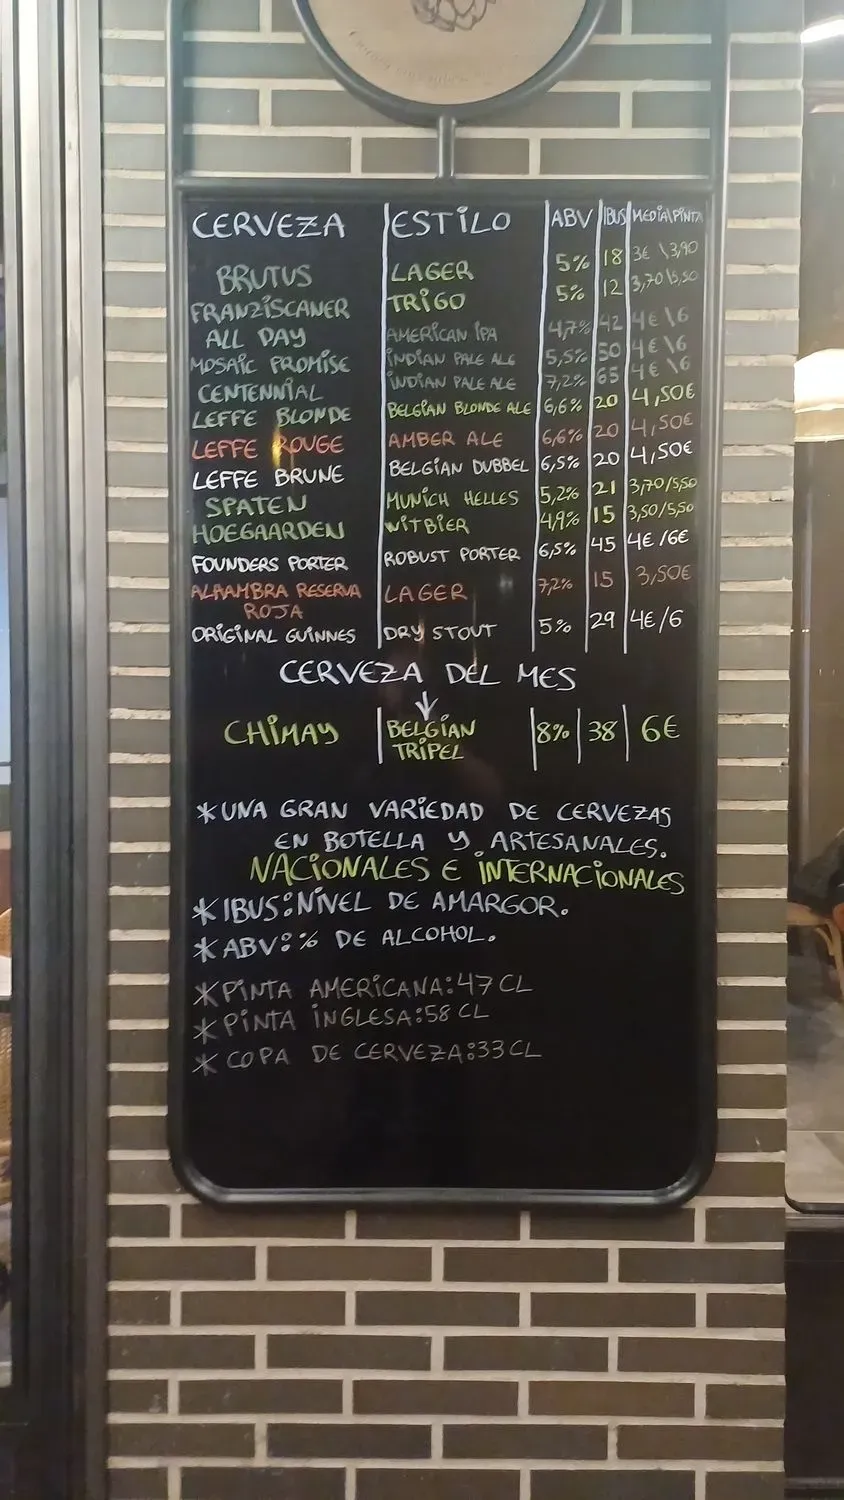 CERVEZA ESTILO ABV IBUS MEDIA\PINTA
BRUTUS LAGER 5% 18 3€ \3,90
FRANZISCANER TRIGO 5% 12 3,70\5,50
ALL DAY AMERICAN IPA 4,7% 42 4€\6
MOSAIC PROMISE INDIAN PALE ALE 5,5% 50 4€\6
CENTENNIAL INDIAN PALE ALE 7,2% 65 4€\6
LEFFE BLONDE BELGIAN BLONDE ALE 6,6% 20 4,50€
LEFFE ROUGE AMBER ALE 6,6% 20 4,50€
LEFFE BRUNE BELGIAN DUBBEL 6,5% 20 4,50€
SPATEN MUNICH HELLES 5,2% 21 3,70/5,50
HOEGAARDEN WITBIER 4,9% 15 3,50/5,50
FOUNDERS PORTER ROBUST PORTER 6,5% 45 4€/6€
ALHAMBRA RESERVA LAGER 7,2% 15 3,50€
ROJA
ORIGINAL GUINNES DRY STOUT 5% 29 4€/6
CERVEZA DEL MES
CHIMAY BELGIAN 8% 38 6€
TRIPEL
*UNA GRAN VARIEDAD DE CERVEZAS
EN BOTELLA Y ARTESANALES.
NACIONALES E INTERNACIONALES
*IBUS:NIVEL DE AMARGOR.
*ABV:% DE ALCOHOL.
*PINTA AMERICANA:47 CL
*PINTA INGLESA:58 CL
*COPA DE CERVEZA:33 CL